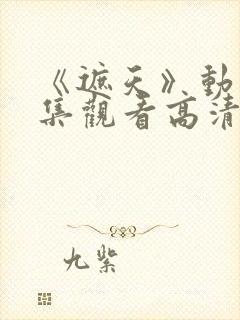 《遮天》動
集觀看高清
九紫